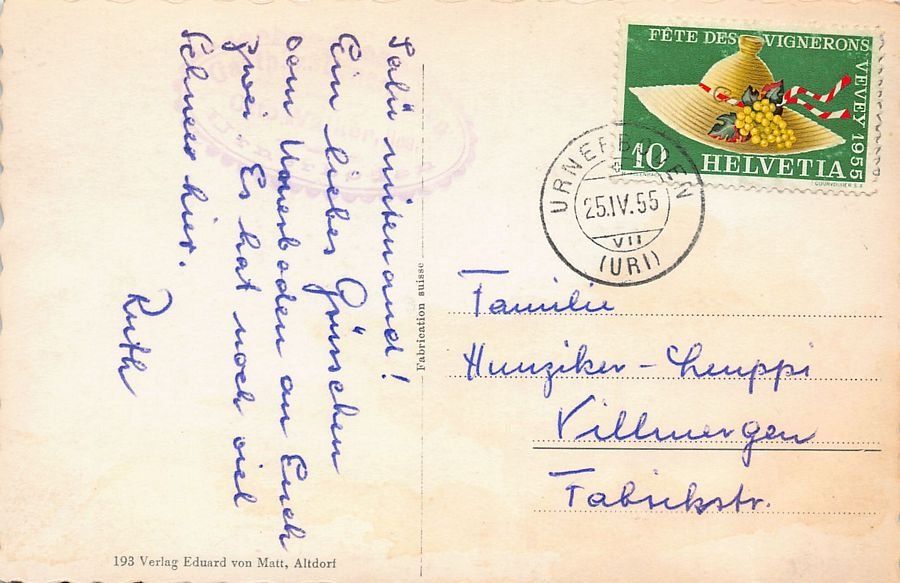 Salü mitenand!
Ein liebes Grüsschen
vom Urnerboden an Euch
zwei. Es hat noch viel
Schnee hier.
Ruth
193 Verlag Eduard von Matt, Altdorf
Fabrication suisse
FÊTE DES VIGNERONS
VEVEY 1955
10 HELVETIA
COURVOISIER S.A.
URNERBODEN
25.IV.55
VII
(URI)
Familie
Hunziker-Leuppi
Villmergen
Fabrikstr.